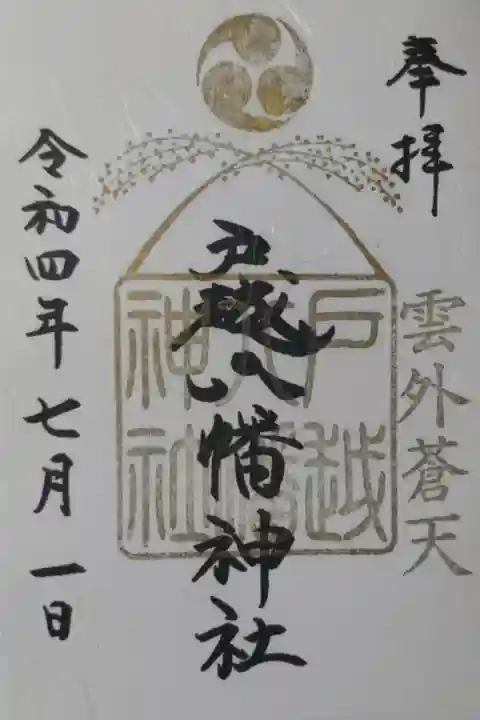 奉拝
雲外蒼天
戸越八幡神社
戸越
八幡
神社
令和四年七月一日